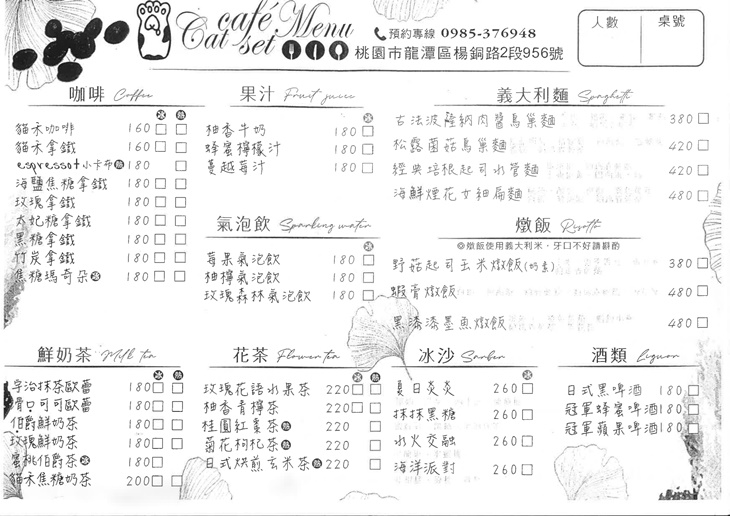 café Menu
Cat set
預約專線 0985-376948
桃園市龍潭區楊銅路2段956號
人數 桌號
咖啡 Coffee
冰 熱
貓禾咖啡 160
貓禾拿鐵 160
espresso+小卡布 熱 180
海鹽焦糖拿鐵 180
玫瑰拿鐵 180
太妃糖拿鐵 180
黑糖拿鐵 180
竹炭拿鐵 180
焦糖瑪奇朵 冰 180
果汁 Fruit juice
冰
柚香牛奶 180
蜂蜜檸檬汁 180
蔓越莓汁 180
氣泡飲 Sparking water
冰
莓果氣泡飲 180
柚檸氣泡飲 180
玫瑰森林氣泡飲 180
義大利麵 Spaghetti
古法波薩納肉醬鳥巢麵 380
松露菌菇鳥巢麵 420
經典培根起司水管麵 420
海鮮煙花女細扁麵 480
燉飯 Risotto
◎燉飯使用義大利米，牙口不好請斟酌
野菇起司玉米燉飯(奶素) 380
蝦膏燉飯 480
黑漆漆墨魚燉飯 480
鮮奶茶 Milk tea
冰 熱
宇治抹茶歐蕾 180
骨口可可歐蕾 180
伯爵鮮奶茶 180
玫瑰鮮奶茶 180
蜜桃伯爵茶 冰 180
貓禾焦糖奶茶 200
花茶 Flower tea
冰 熱
玫瑰花語水果茶 220
柚香青檸茶 220
桂圓紅棗茶 熱 220
菊花枸杞茶 熱 220
日式烘煎玄米茶 熱 220
冰沙
冰
夏日炎炎 260
抹抹黑糖 260
水火交融 260
海洋派對 260
酒類 Liquor
日式黑啤酒 180
冠軍蜂蜜啤酒 180
冠軍蘋果啤酒 180